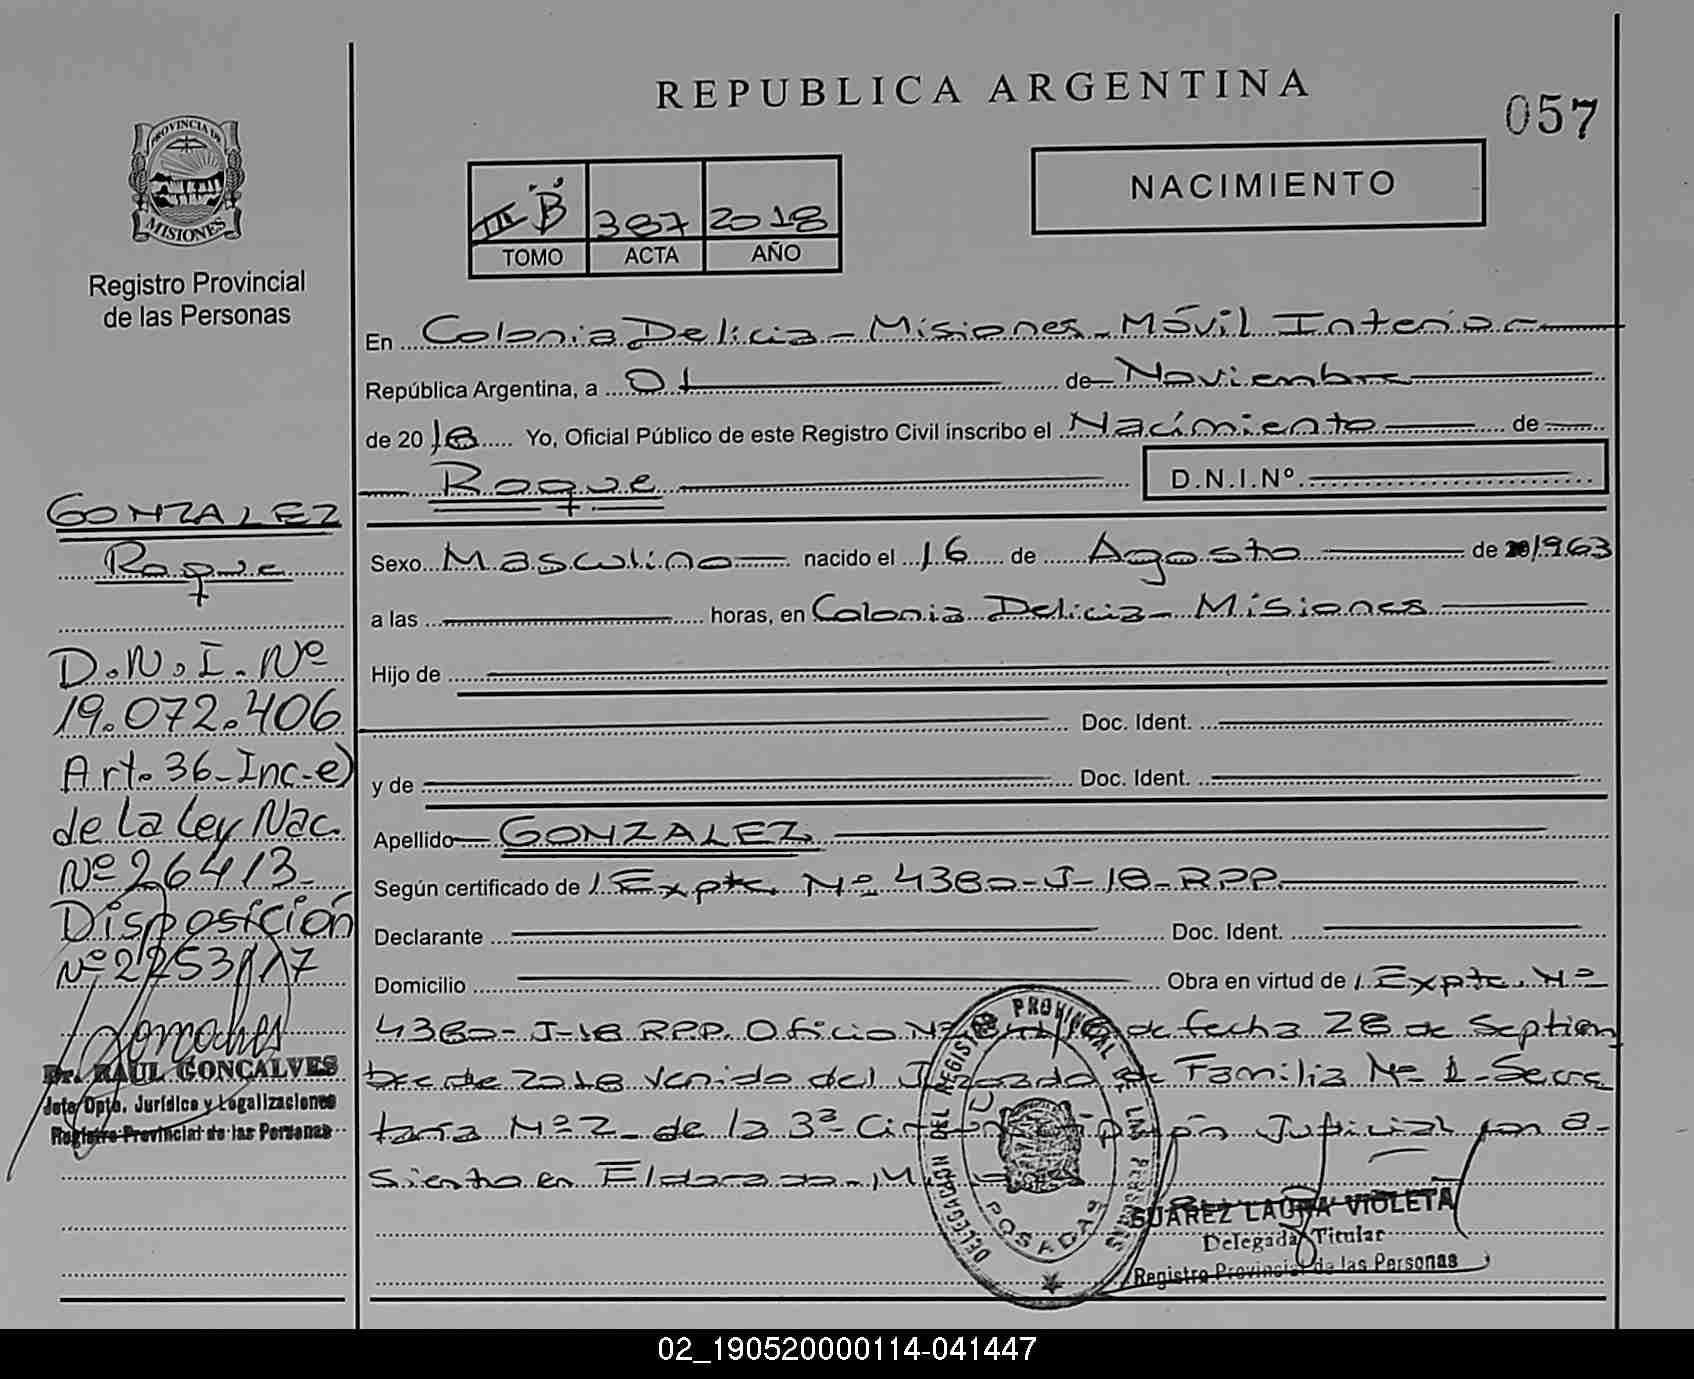 REPUBLICA ARGENTINA
057
PROVINCIA DE
MISIONES
Registro Provincial
de las Personas
III "B" 387 2018
TOMO ACTA AÑO
NACIMIENTO
En Colonia Delicia - Misiones - Móvil Interior
República Argentina, a 01 de Noviembre
de 2018 Yo, Oficial Público de este Registro Civil inscribo el Nacimiento de
Roque D.N.I.Nº
Sexo Masculino nacido el 16 de Agosto de 1963
a las horas, en Colonia Delicia - Misiones
Hijo de
Doc. Ident.
y de Doc. Ident.
Apellido GONZALEZ
Según certificado de / Expte. Nº 4380-J-18-RPP.
Declarante Doc. Ident.
Domicilio Obra en virtud de / Expte. Nº
4380-J-18 RPP. Oficio de fecha 28 de Septiem
bre de 2018 venido del Juzgado de Familia Nº 1 - Secre
taría Nº 2 - de la 3ª Judicial con a-
siento en Eldorado -
GONZALEZ
Roque
D.N.I. Nº
19.072.406
Art. 36 - Inc. e)
de la Ley Nac.
Nº 26413 -
Disposición
Nº 2253/17
Dr. RAUL GONCALVES
Jefe Dpto. Jurídico y Legalizaciones
Registro Provincial de las Personas
DELEGACION DEL REGISTRO PROVINCIAL DE LAS PERSONAS
POSADAS
SUAREZ LAURA VIOLETA
Delegada Titular
Registro Provincial de las Personas
02_190520000114-041447